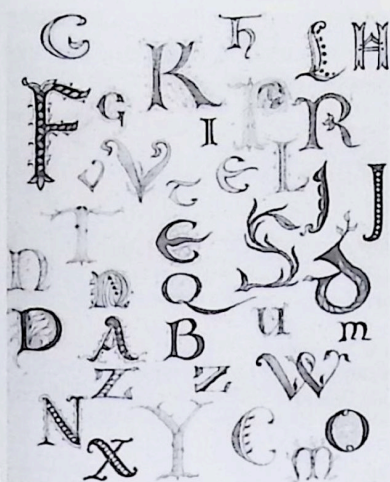 G h L H
F G K I P R
V V T E L J J
T E S
n n Q d
D A B u m
Z Z W
N X Y E m O